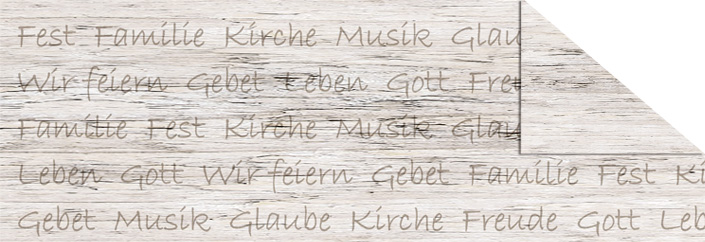 Fest Familie Kirche Musik Glau
Wir feiern Gebet Leben Gott Fre
Familie Fest Kirche Musik Glau
Leben Gott Wir feiern Gebet Familie Fest Ki
Gebet Musik Glaube Kirche Freude Gott Leb